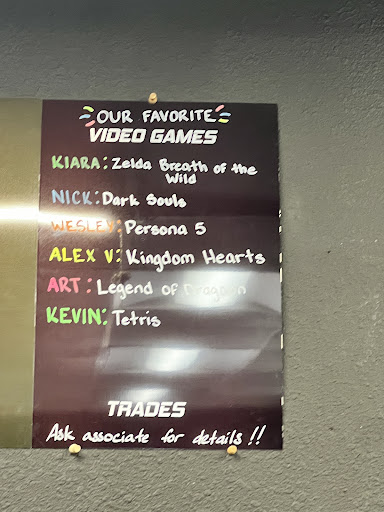 OUR FAVORITE
VIDEO GAMES
KIARA: Zelda Breath of the
Wild
NICK: Dark Souls
WESLEY: Persona 5
ALEX V: Kingdom Hearts
ART: Legend of Dragoon
KEVIN: Tetris
TRADES
Ask associate for details!!